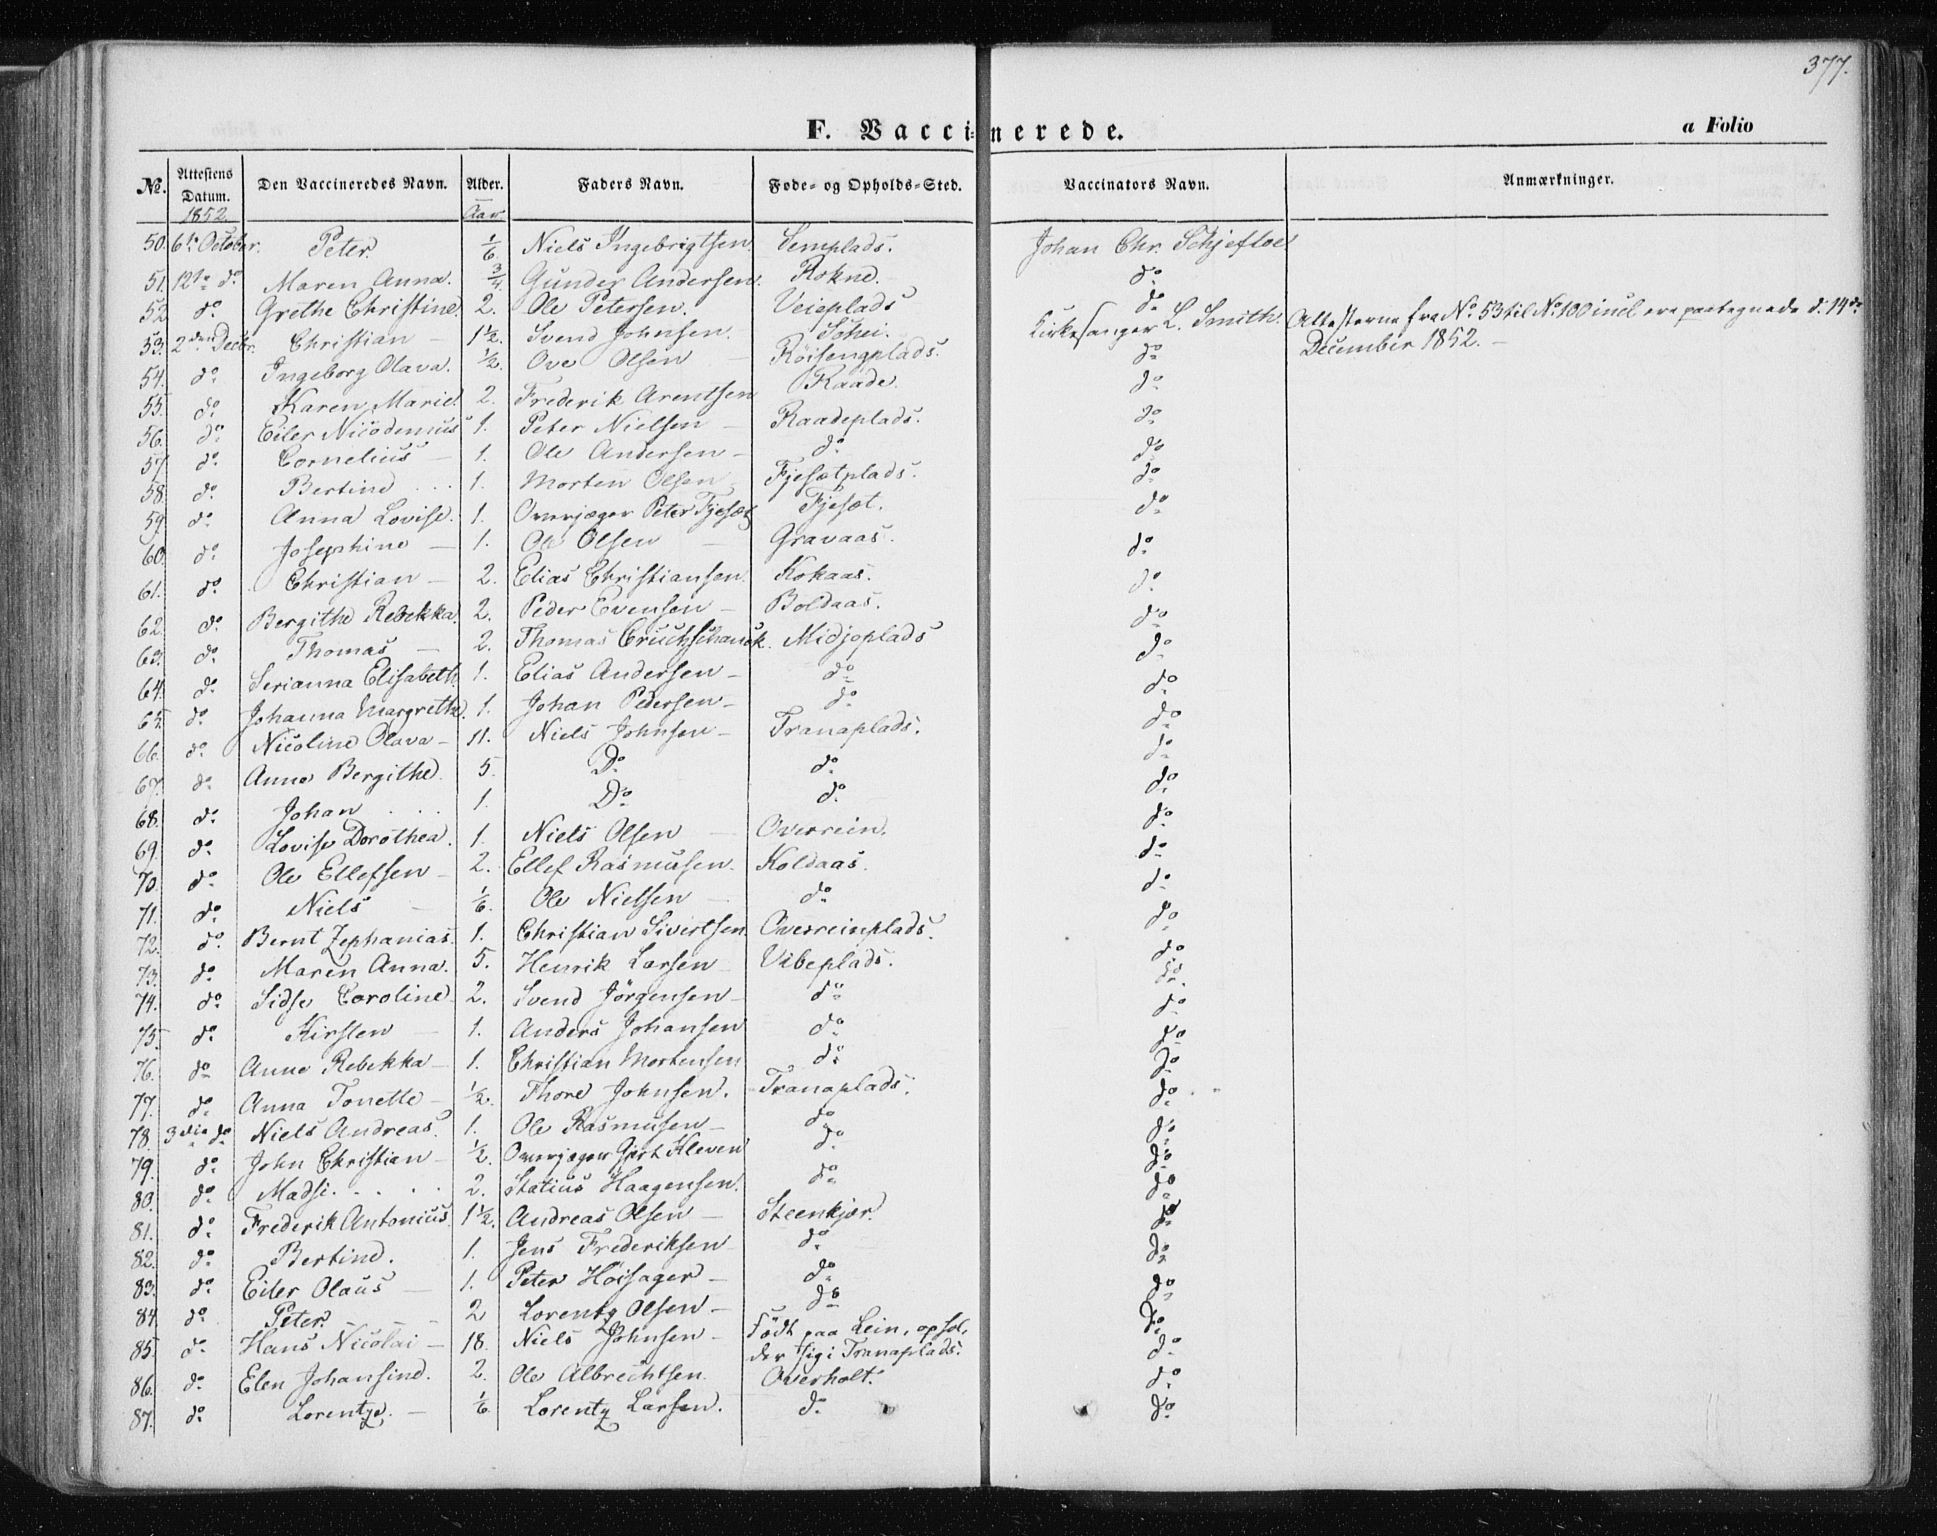 377.
F. Vaccinerede.
a Folio
No. Attestens Datum. Den Vaccineredes Navn. Alder. Faders Navn. Føde- og Opholds-Sted. Vaccinators Navn. Anmærkninger.
1852. Aar
50. 6te October. Peter. 1/6 Niels Ingebrigtsen. Lemplads. Johan Chr. Schjefloe
51. 12te do Maren Anna. 3/4 Gunder Andersen. Rokne. do
52. do Grethe Christine. 2. Ole Petersen. Veieplads do
53. 2den Decbr. Christian – 1 1/2. Svend Johnsen. Schei. Kirkesanger L. Smith. Attesterne fra No 53 til No 100 incl ere paategnede d. 14de
December 1852. –
54. do Ingeborg Olava. 1/2. Ove Olsen – Röisengplads. do
55. do Karen Marie. 2. Frederik Arentsen Raade. do
56. do Eiler Nicodemus 1. Peter Nielsen – Raadeplads. do
57. do Cornelius – 1. Ole Andersen – do do
58. do Bertine . . . 1. Morten Olsen Fjesætplads. do
59. do Anna Lovise. 1. Overjæger Peter Fjesæt Fjesæt. do
60. do Josephine – 1. Ole Olsen – Gravaas. do
61. do Christian – 2. Elias Christiansen. Kokaas. do
62. do Bergithe Rebekka. 2. Peder Evensen – Boldaas. do
63. do Thomas – 2. Thomas Cruchschansk. Midjoplads do
64. do Serianna Elisabeth 1. Elias Andersen – do do
65. do Johanna Margrethe. 1. Johan Pedersen – do do
66. do Nicoline Olava – 11. Niels Johnsen – Tranaplads. do
67. do Anne Bergithe. 5. Do do do
68. do Johan . . . 1. Do do do
69. do Lovise Dorothea. 1. Niels Olsen – Overrein. do
70. do Ole Ellefsen – 2. Ellef Rasmusen. Koldaas. do
71. do Niels – 1/6 Ole Nielsen – do do
72. do Bernt Zephanias. 1. Christian Sivertsen. Overreinplads. do
73. do Maren Anna. 5. Henrik Larsen – Vibeplads. do
74. do Sidse Caroline. 2. Svend Jörgensen – do do
75. do Kirsten – 1. Anders Johansen do do
76. do Anne Rebekka – 1. Christian Mortensen do do
77. do Anna Tonette – 1/2. Thore Johnsen. Tranaplads. do
78. 3die do Niels Andreas. 1. Ole Rasmusen – do do
79. do John Christian – 1/2. Overjæger Gert Kleven do do
80. do Madsi. . . . 2. Statius Haagensen. do do
81. do Frederik Antonius. 1 1/2. Andreas Olsen – Steenkjær. do
82. do Bertine. 1. Jens Frederiksen do do
83. do Eiler Olaus – 1. Peter Höisager – do do
84. do Peter. – – 2 Lorentz Olsen – do do
85. do Hans Nicolai – 18. Niels Johnsen – Födt paa Lein, ophol, do
der sig i Tranaplads.
86. do Elen Johansine. 2. Ole Albrechtsen. Overholt. do
87. do Lorentze. – 1/6 Lorentz Larsen. do do